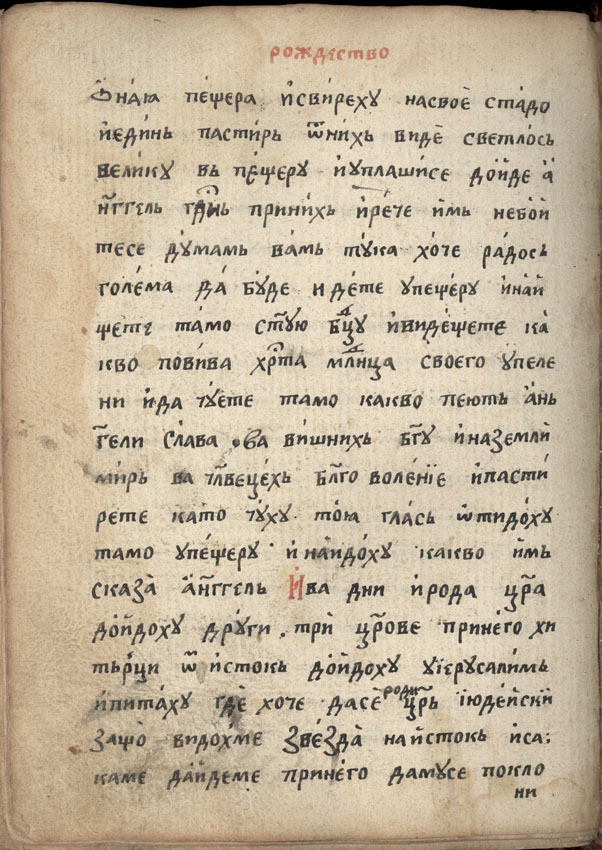 рождество
ѻна́ѧ пе́щера и҆сви́реху насвоѐ ста́до
и҆еди́нь пасти́рь ѿни́хь видѐ светло́сь
вели́ку вь пе́щеру и҆упла́шисе до́йде а҆́
нг҃гель гд҃нь прини́хь и҆рече и҆мь небо́й
тесе ду́мамь ва́мь ту́ка хо́че ра́дось
голе́ма да́ бу́де иде́те упеще́ру и҆на́й
щете та́мо ст҃ую бц҃ду и҆виде́щете ка
кво пови́ва хрⷭ҇та млⷣнца своего упеле
ни и҆да чу́ете тамо какво пеють а҆нь
г҃ели сла́ва ва ви́шнихь бг҃у и҆наземлѝ
ми́рь ва чл҃вецехь бл҃го воле́нїе и҆пасти́
рете като чу́ху то́ѧ глась ѿтидо́ху
тамо упе́щеру и҆ наидо́ху какво и҆мь
сказа̀ а҆нг҃гель И҆ва дни и҆рода цр҃а
до́йдоху други трѝ цр҃ове прине́го хи
тьрци ѿ и҆стокь до́йдоху уїерусали́мь
и҆пита́ху гдѐ хоче дасѐ родⷤи цр҃ь їюде́йскй
защо̀ видохме ѕве́зда̀ наи҆стокь и҆са:
каме да́йдеме прине́го дамусе покло
ни